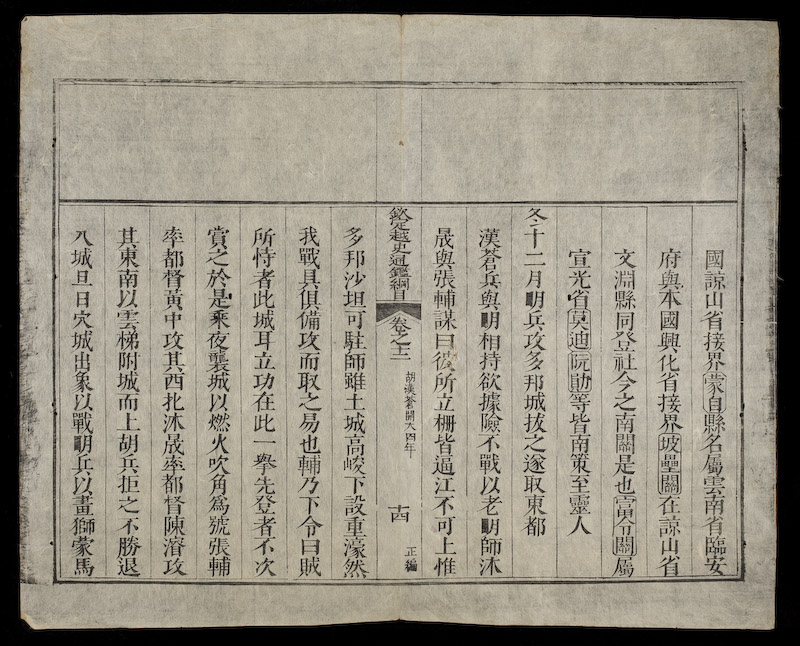 國諒山省接界蒙自縣名屬雲南省臨安
府與本國興化省接界坡壘關在諒山省
文淵縣同登社今之南關是也富令關屬
宣光省莫迪阮勛等皆南策至靈人
冬十二月明兵攻多邦城拔之遂取東都
漢蒼兵與明相持欲據險不戰以老明師沐
晟與張輔謀曰彼所立柵皆逼江不可上惟
欽定越史通鑑綱目 卷之十二 胡漢蒼開大四年 十四 正編
多邦沙坦可駐師雖土城高峻下設重濠然
我戰具俱備攻而取之易也輔乃下令曰賊
所恃者此城耳立功在此一舉先登者不次
賞之於是乘夜襲城以燃火吹角為號張輔
率都督黃中攻其西北沐晟率都督陳濬攻
其東南以雲梯附城而上胡兵拒之不勝退
入城旦日穴城出象以戰明兵以畫獅蒙馬